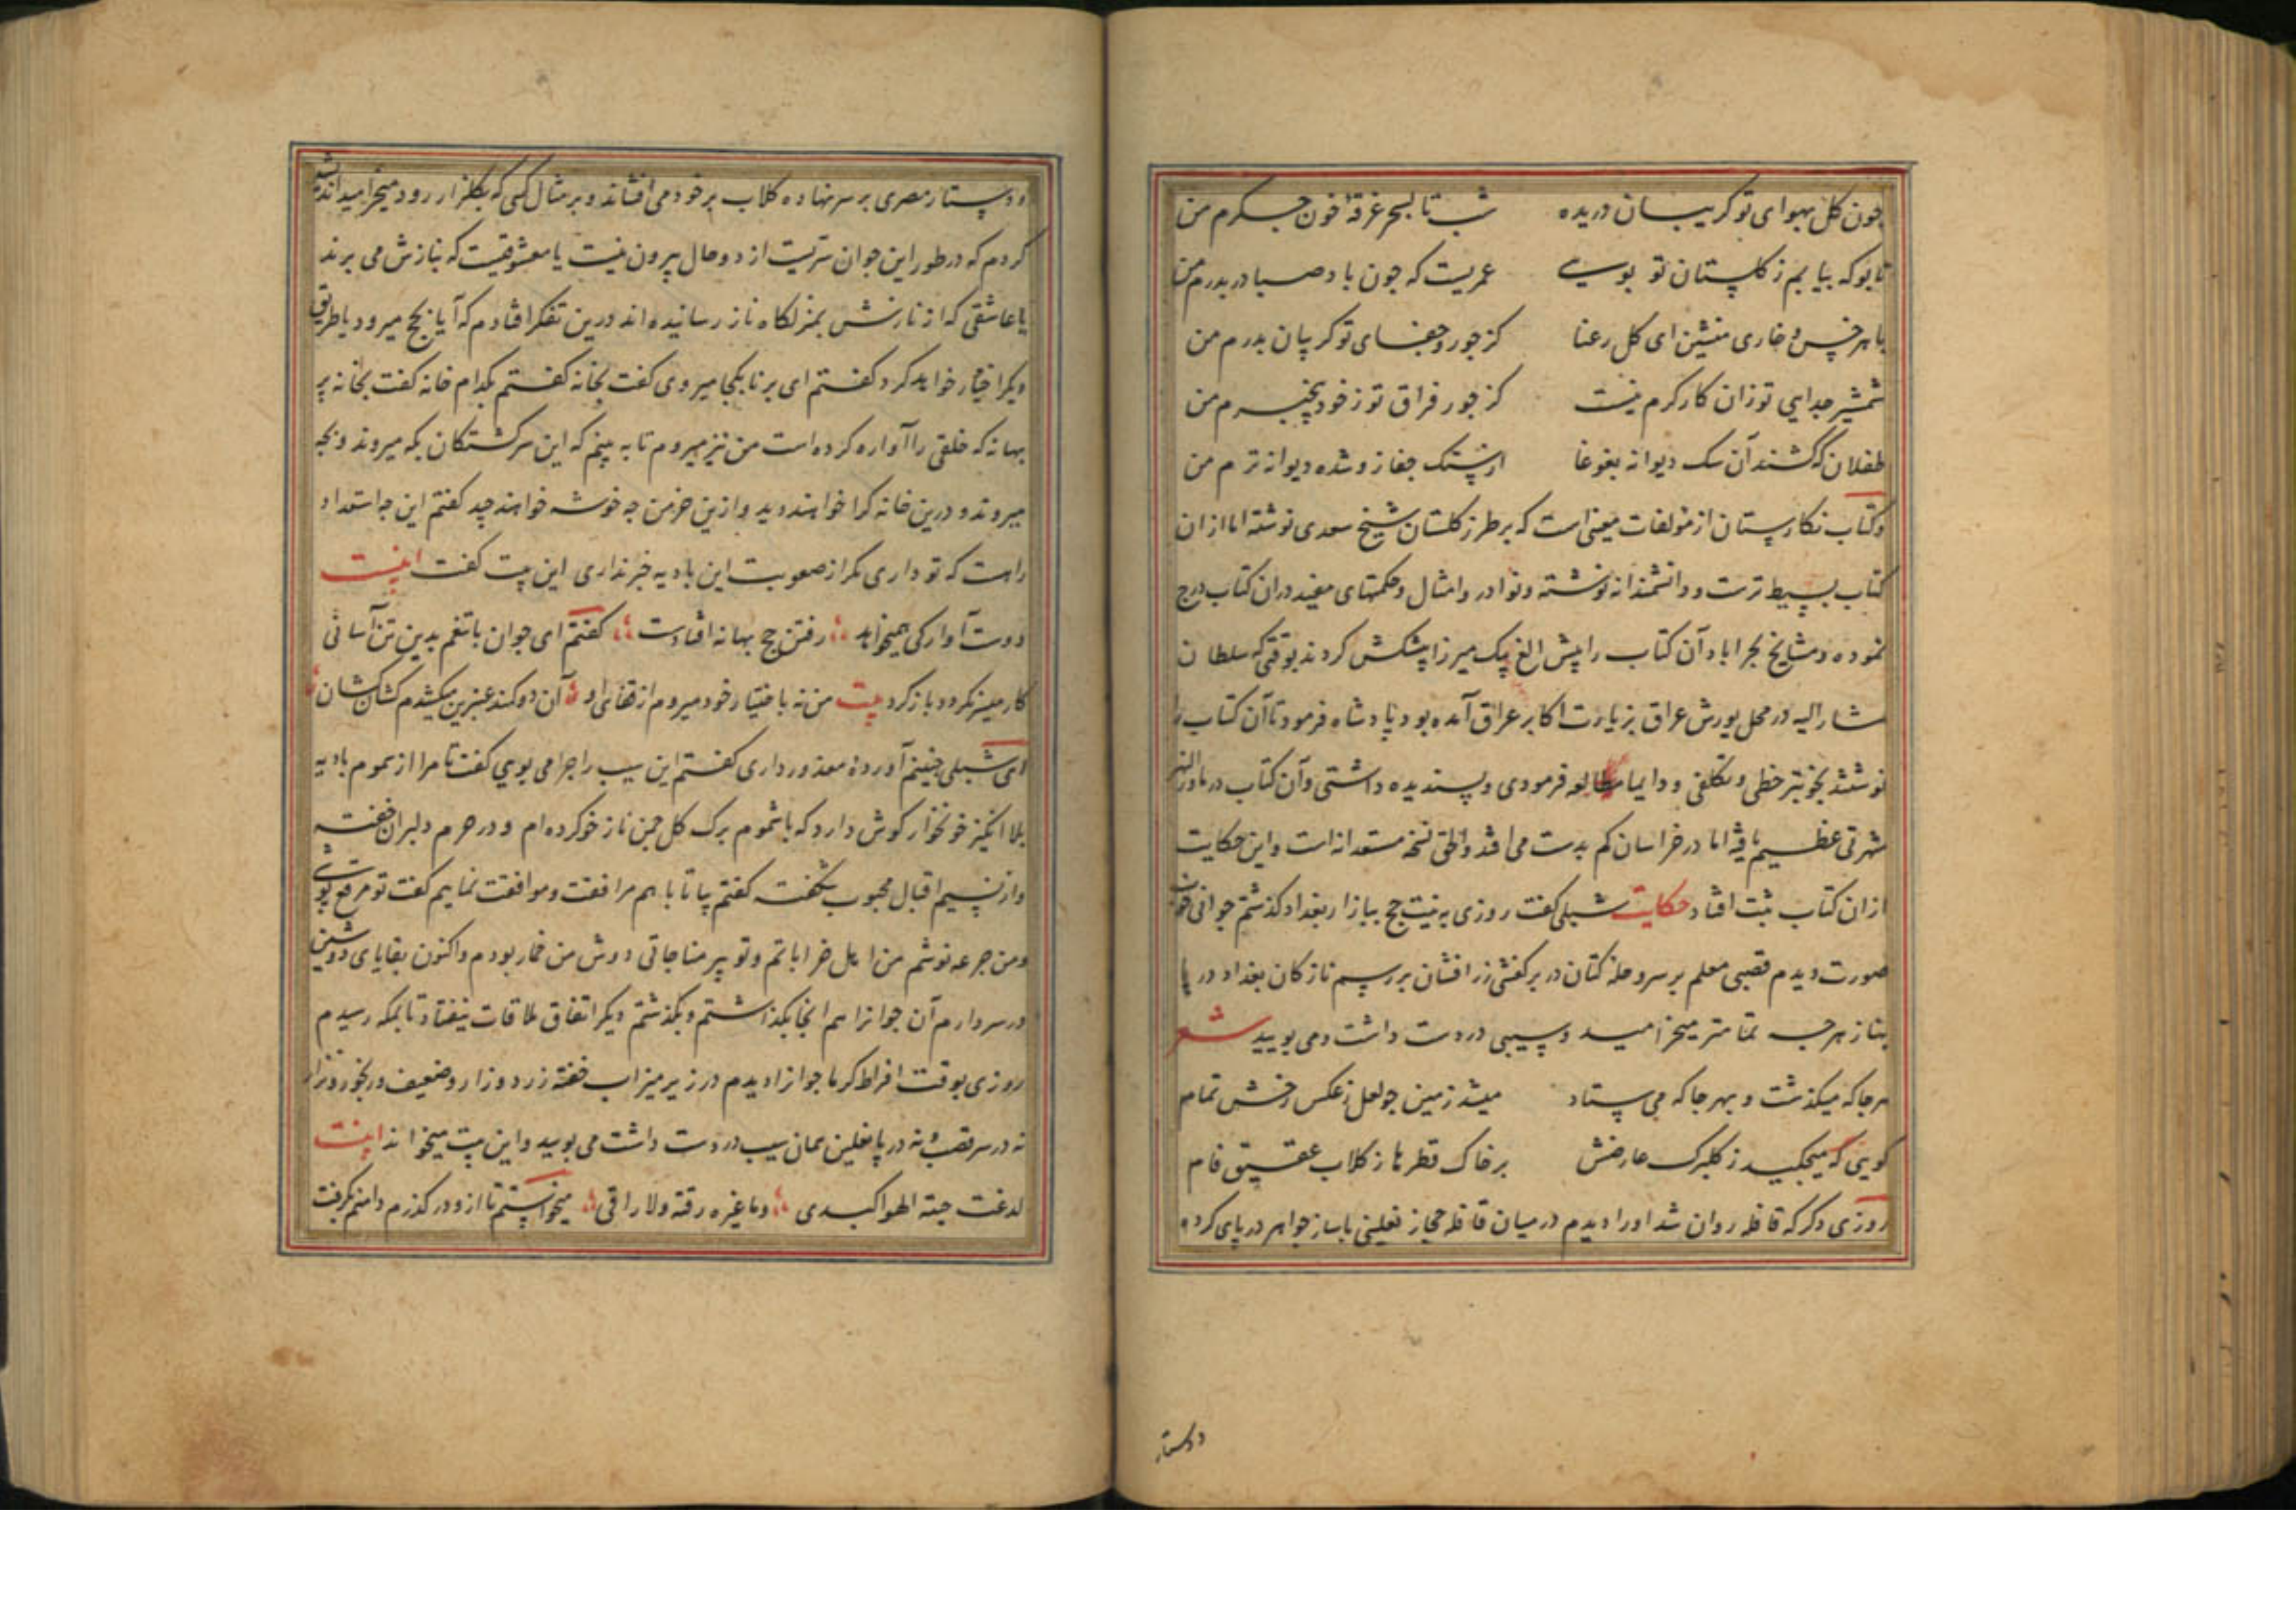 چون گل بهوای تو گریبان دریده شب تا بسحر غرقهٔ خون جگرم من
تا بو که بیابم ز گلستان تو بویی عمریست که چون باد صبا دربدرم من
با هر خس و خاری منشین ای گل رعنا کز جور و جفای تو گریبان بدرم من
شمشیر جدایی تو زان کارگرم نیست کز جور فراق تو ز خود بیخبرم من
طفلان که کشند آن سگ دیوانه بغوغا از سنگ جفا زو شده دیوانه ترم من
و کتاب نکارستان از مؤلفات معینی است که بر طرز کلستان شیخ سعدی نوشته اما از ان
کتاب بسیط ترست و دانشمندانه نوشته و نوادر و امثال و حکمتهای مفید دران کتاب درج
نموده و مشایخ بحراباد آن کتاب را پیش الغ بیک میرزا پیشکش کردند بوقتی که سلطان
مشار الیه در محل یورش عراق بزیارت اکابر عراق آمده بود پادشاه فرمود تا آن کتاب را
نوشتند بخوبتر خطی و تکلفی و دایما مطالعه فرمودی و پسندیده داشتی و آن کتاب در ماورا النهر
شهرتی عظیم یافته اما در خراسان کم بدست می افتد و الحق نسخهٔ مستعدانه است و این حکایت
از ان کتاب ثبت افتاد حکایت شبلی کفت روزی به نیت حج ببازار بغداد کذشتم جوانی خوب
صورت دیدم قصبی معلم بر سر و حلهٔ کتان در بر کفشی زر افشان بر رسم نازکان بغداد در پا
بناز هرچه تمامتر میخرامید و سیبی در دست داشت و می بویید شعر
هر جا که میکذشت و بهر جا که می ستاد میشد زمین چو لعل ز عکس رخش تمام
گویی که میچکید ز کلبرک عارضش بر خاک قطرها ز کلاب عقیق فام
روزی دکر که قافله روان شد او را دیدم در میان قافله حجاز نعلینی با ساز جواهر در پای کرده
و دستار
و دستار مصری بر سر نهاده کلاب بر خود می افشاند و بر مثال کسی که بکلزار رود میخرامید اندیشه
کردم که در طور این جوان سریست از دو حال بیرون نیست یا معشوقیست که بنازش می برند
یا عاشقی که از نازش بمنزلکاه ناز رسانیده اند درین تفکر افتادم که آیا بحج میرود یا طریق
دیکر اختیار خواهد کرد کفتم ای برنا بکجا میروی کفت بخانه کفتم بکدام خانه کفت بخانه پر
بهانه که خلقی را آواره کرده است من نیز میروم تا به بینم که این سرکشتکان بکه میروند و بچه
میروند و درین خانه کرا خواهند دید و ازین خرمن چه خوشه خواهند چید کفتم این چه استعداد
راست که تو داری مکر از صعوبت این بادیه خبر نداری این بیت کفت
دوست آوارکی همیخواهد رفتن حج بهانه افتادست کفتم ای جوان با تنعم بدین تن آسانی
کار میسر نکردد باز کرد بیت من نه باختیار خود میروم از قفای او آن دو کمند عنبرین میکشدم کشان کشان
ای شبلی چنینم آوردهٔ معذور داری کفتم این سیب را چرا می بویی کفت تا مرا از سموم بادیه
بلا انکیز خونخوار کوش دارد که با شموم برک کل چمن ناز خو کرده ام و در حرم دلبران خفته
و از نسیم اقبال محبوب شکفته کفتم بیا تا با هم مرافقت و موافقت نماییم کفت تو مرقع پوشی
و من جرعه نوشم من اهل خراباتم و تو پیر مناجاتی دوش من خمار بودم و اکنون بقایای دوشین
در سر دارم آن جوانرا هم انجا بکذاشتم و بکذشتم دیکر اتفاق ملاقات نیفتاد تا بمکه رسیدم
روزی بوقت افراط کرما جوانرا دیدم در زیر میزاب خفته زرد و زار و ضعیف و رنجور و نزار
نه در سر قصب و نه در پا نعلین همان سیب در دست داشت می بویید و این بیت میخواند
لدغت حیة الهوا کبدی وما غیره رقیه ولا راقی میخواستم تا از و در کذرم دامنم بکرفت